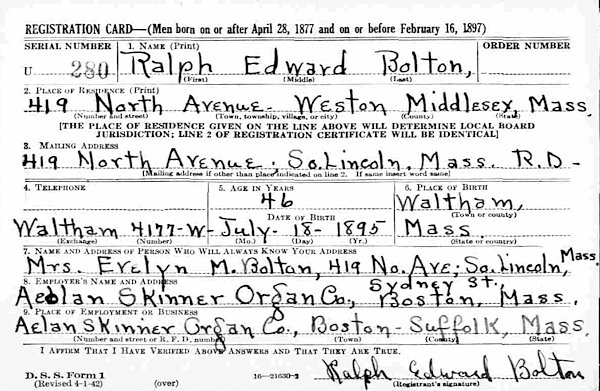 REGISTRATION CARD—(Men born on or after April 28, 1877 and on or before February 16, 1897)
SERIAL NUMBER 1. NAME (Print) ORDER NUMBER
U 280 Ralph Edward Bolton,
(First) (Middle) (Last)
2. PLACE OF RESIDENCE (Print)
419 North Avenue- Weston Middlesex, Mass.
(Number and street) (Town, township, village, or city) (County) (State)
[THE PLACE OF RESIDENCE GIVEN ON THE LINE ABOVE WILL DETERMINE LOCAL BOARD
JURISDICTION; LINE 2 OF REGISTRATION CERTIFICATE WILL BE IDENTICAL]
3. MAILING ADDRESS
419 North Avenue; So. Lincoln, Mass. R.D-
[Mailing address if other than place indicated on line 2. If same insert word same]
4. TELEPHONE 5. AGE IN YEARS 6. PLACE OF BIRTH
46 Waltham,
DATE OF BIRTH (Town or county)
Waltham 4177-W- July- 18- 1895 Mass.
(Exchange) (Number) (Mo.) (Day) (Yr.) (State or country)
7. NAME AND ADDRESS OF PERSON WHO WILL ALWAYS KNOW YOUR ADDRESS
Mrs. Evelyn M. Bolton, 419 No. Ave; So. Lincoln, Mass
8. EMPLOYER'S NAME AND ADDRESS Sydney St.,
Aeolan Skinner Organ Co., Boston, Mass.
9. PLACE OF EMPLOYMENT OR BUSINESS
Aelan Skinner Organ Co., Boston- Suffolk, Mass.
(Number and street or R. F. D. number) (Town) (County) (State)
I AFFIRM THAT I HAVE VERIFIED ABOVE ANSWERS AND THAT THEY ARE TRUE.
D. S. S. Form 1
(Revised 4-1-42) (over) 16—21630-2 Ralph Edward Bolton
(Registrant's signature)